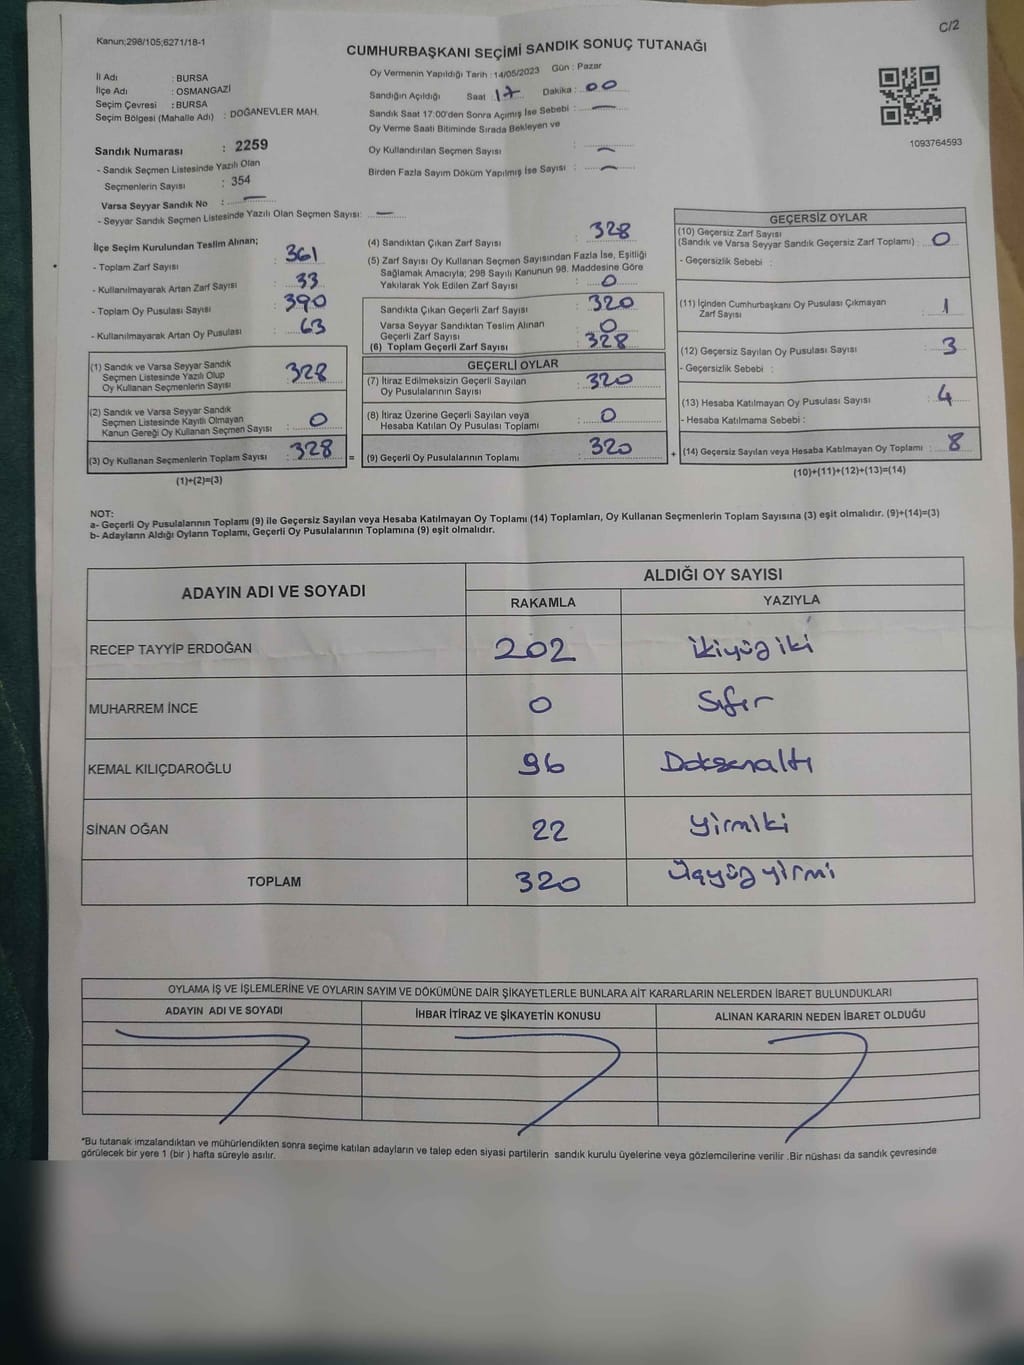 C/2
Kanun;298/105;6271/18-1
CUMHURBAŞKANI SEÇİMİ SANDIK SONUÇ TUTANAĞI
İl Adı : BURSA
İlçe Adı : OSMANGAZİ
Seçim Çevresi : BURSA
Seçim Bölgesi (Mahalle Adı) : DOĞANEVLER MAH.
Sandık Numarası : 2259
- Sandık Seçmen Listesinde Yazılı Olan
Seçmenlerin Sayısı : 354
Varsa Seyyar Sandık No : —
- Seyyar Sandık Seçmen Listesinde Yazılı Olan Seçmen Sayısı: —
Oy Vermenin Yapıldığı Tarih : 14/05/2023 Gün : Pazar
Sandığın Açıldığı Saat 17 Dakika : 00
Sandık Saat 17:00'den Sonra Açımış İse Sebebi : —
Oy Verme Saati Bitiminde Sırada Bekleyen ve
Oy Kullandırılan Seçmen Sayısı : —
Birden Fazla Sayım Döküm Yapılmış İse Sayısı : —
1093764593
İlçe Seçim Kurulundan Teslim Alınan;
- Toplam Zarf Sayısı : 361
- Kullanılmayarak Artan Zarf Sayısı : 33
- Toplam Oy Pusulası Sayısı : 390
- Kullanılmayarak Artan Oy Pusulası : 63
(1) Sandık ve Varsa Seyyar Sandık
Seçmen Listesinde Yazılı Olup
Oy Kullanan Seçmenlerin Sayısı : 328
(2) Sandık ve Varsa Seyyar Sandık
Seçmen Listesinde Kayıtlı Olmayan
Kanun Gereği Oy Kullanan Seçmen Sayısı : 0
(3) Oy Kullanan Seçmenlerin Toplam Sayısı : 328 =
(1)+(2)=(3)
(4) Sandıktan Çıkan Zarf Sayısı : 328
(5) Zarf Sayısı Oy Kullanan Seçmen Sayısından Fazla İse, Eşitliği
Sağlamak Amacıyla; 298 Sayılı Kanunun 98. Maddesine Göre
Yakılarak Yok Edilen Zarf Sayısı : 0
Sandıkta Çıkan Geçerli Zarf Sayısı : 320
Varsa Seyyar Sandıktan Teslim Alınan
Geçerli Zarf Sayısı : 0
(6) Toplam Geçerli Zarf Sayısı : 328
GEÇERLİ OYLAR
(7) İtiraz Edilmeksizin Geçerli Sayılan
Oy Pusulalarının Sayısı : 320
(8) İtiraz Üzerine Geçerli Sayılan veya
Hesaba Katılan Oy Pusulaları Toplamı : 0
(9) Geçerli Oy Pusulalarının Toplamı : 320 +
GEÇERSİZ OYLAR
(10) Geçersiz Zarf Sayısı
(Sandık ve Varsa Seyyar Sandık Geçersiz Zarf Toplamı) : 0
- Geçersizlik Sebebi :
(11) İçinden Cumhurbaşkanı Oy Pusulası Çıkmayan
Zarf Sayısı : 1
(12) Geçersiz Sayılan Oy Pusulası Sayısı : 3
- Geçersizlik Sebebi :
(13) Hesaba Katılmayan Oy Pusulası Sayısı : 4
- Hesaba Katılmama Sebebi :
(14) Geçersiz Sayılan veya Hesaba Katılmayan Oy Toplamı : 8
(10)+(11)+(12)+(13)=(14)
NOT:
a- Geçerli Oy Pusulalarının Toplamı (9) ile Geçersiz Sayılan veya Hesaba Katılmayan Oy Toplamı (14) Toplamları, Oy Kullanan Seçmenlerin Toplam Sayısına (3) eşit olmalıdır. (9)+(14)=(3)
b- Adayların Aldığı Oyların Toplamı, Geçerli Oy Pusulalarının Toplamına (9) eşit olmalıdır.
ADAYIN ADI VE SOYADI ALDIĞI OY SAYISI
RAKAMLA YAZIYLA
RECEP TAYYİP ERDOĞAN 202 ikiyüz iki
MUHARREM İNCE 0 Sıfır
KEMAL KILIÇDAROĞLU 96 Doksanaltı
SİNAN OĞAN 22 yirmiki
TOPLAM 320 Üçyüz yirmi
OYLAMA İŞ VE İŞLEMLERİNE VE OYLARIN SAYIM VE DÖKÜMÜNE DAİR ŞİKAYETLERLE BUNLARA AİT KARARLARIN NELERDEN İBARET BULUNDUKLARI
ADAYIN ADI VE SOYADI İHBAR İTİRAZ VE ŞİKAYETİN KONUSU ALINAN KARARIN NEDEN İBARET OLDUĞU
*Bu tutanak imzalandıktan ve mühürlendikten sonra seçime katılan adayların ve talep eden siyasi partilerin sandık kurulu üyelerine veya gözlemcilerine verilir .Bir nüshası da sandık çevresinde
görülecek bir yere 1 (bir ) hafta süreyle asılır.